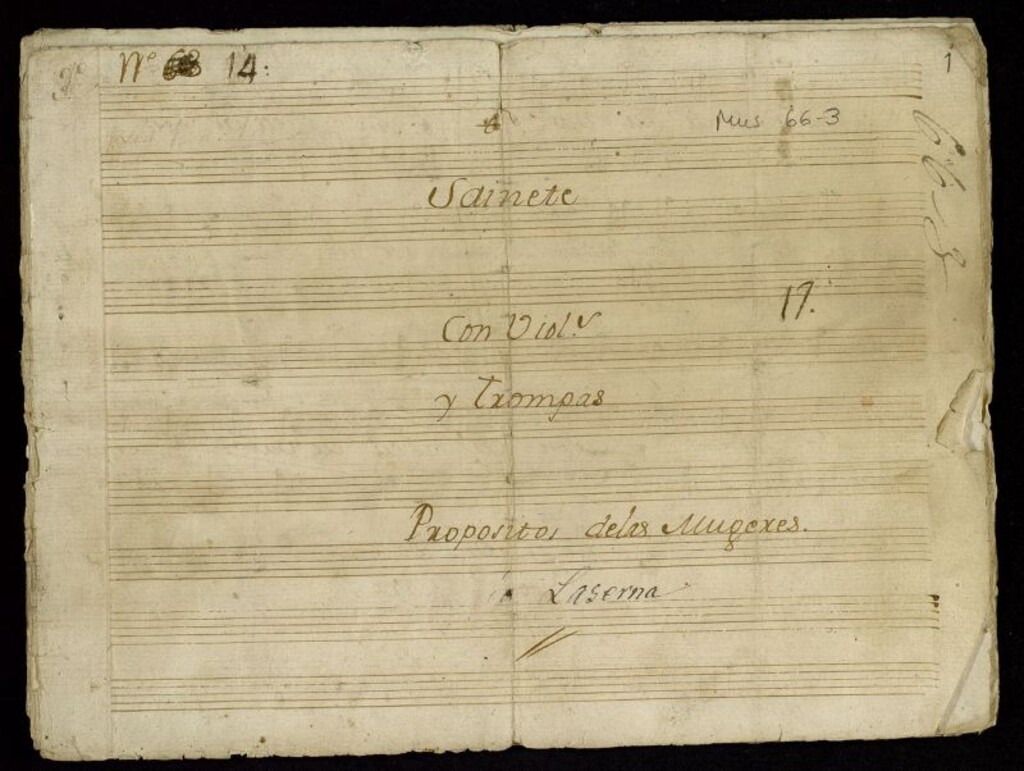 Nº 14:
1
Mus 66-3
66-3
Sainete
17.
Con Viol.s
y Trompas
Propositos delas Mugeres.
Laserna